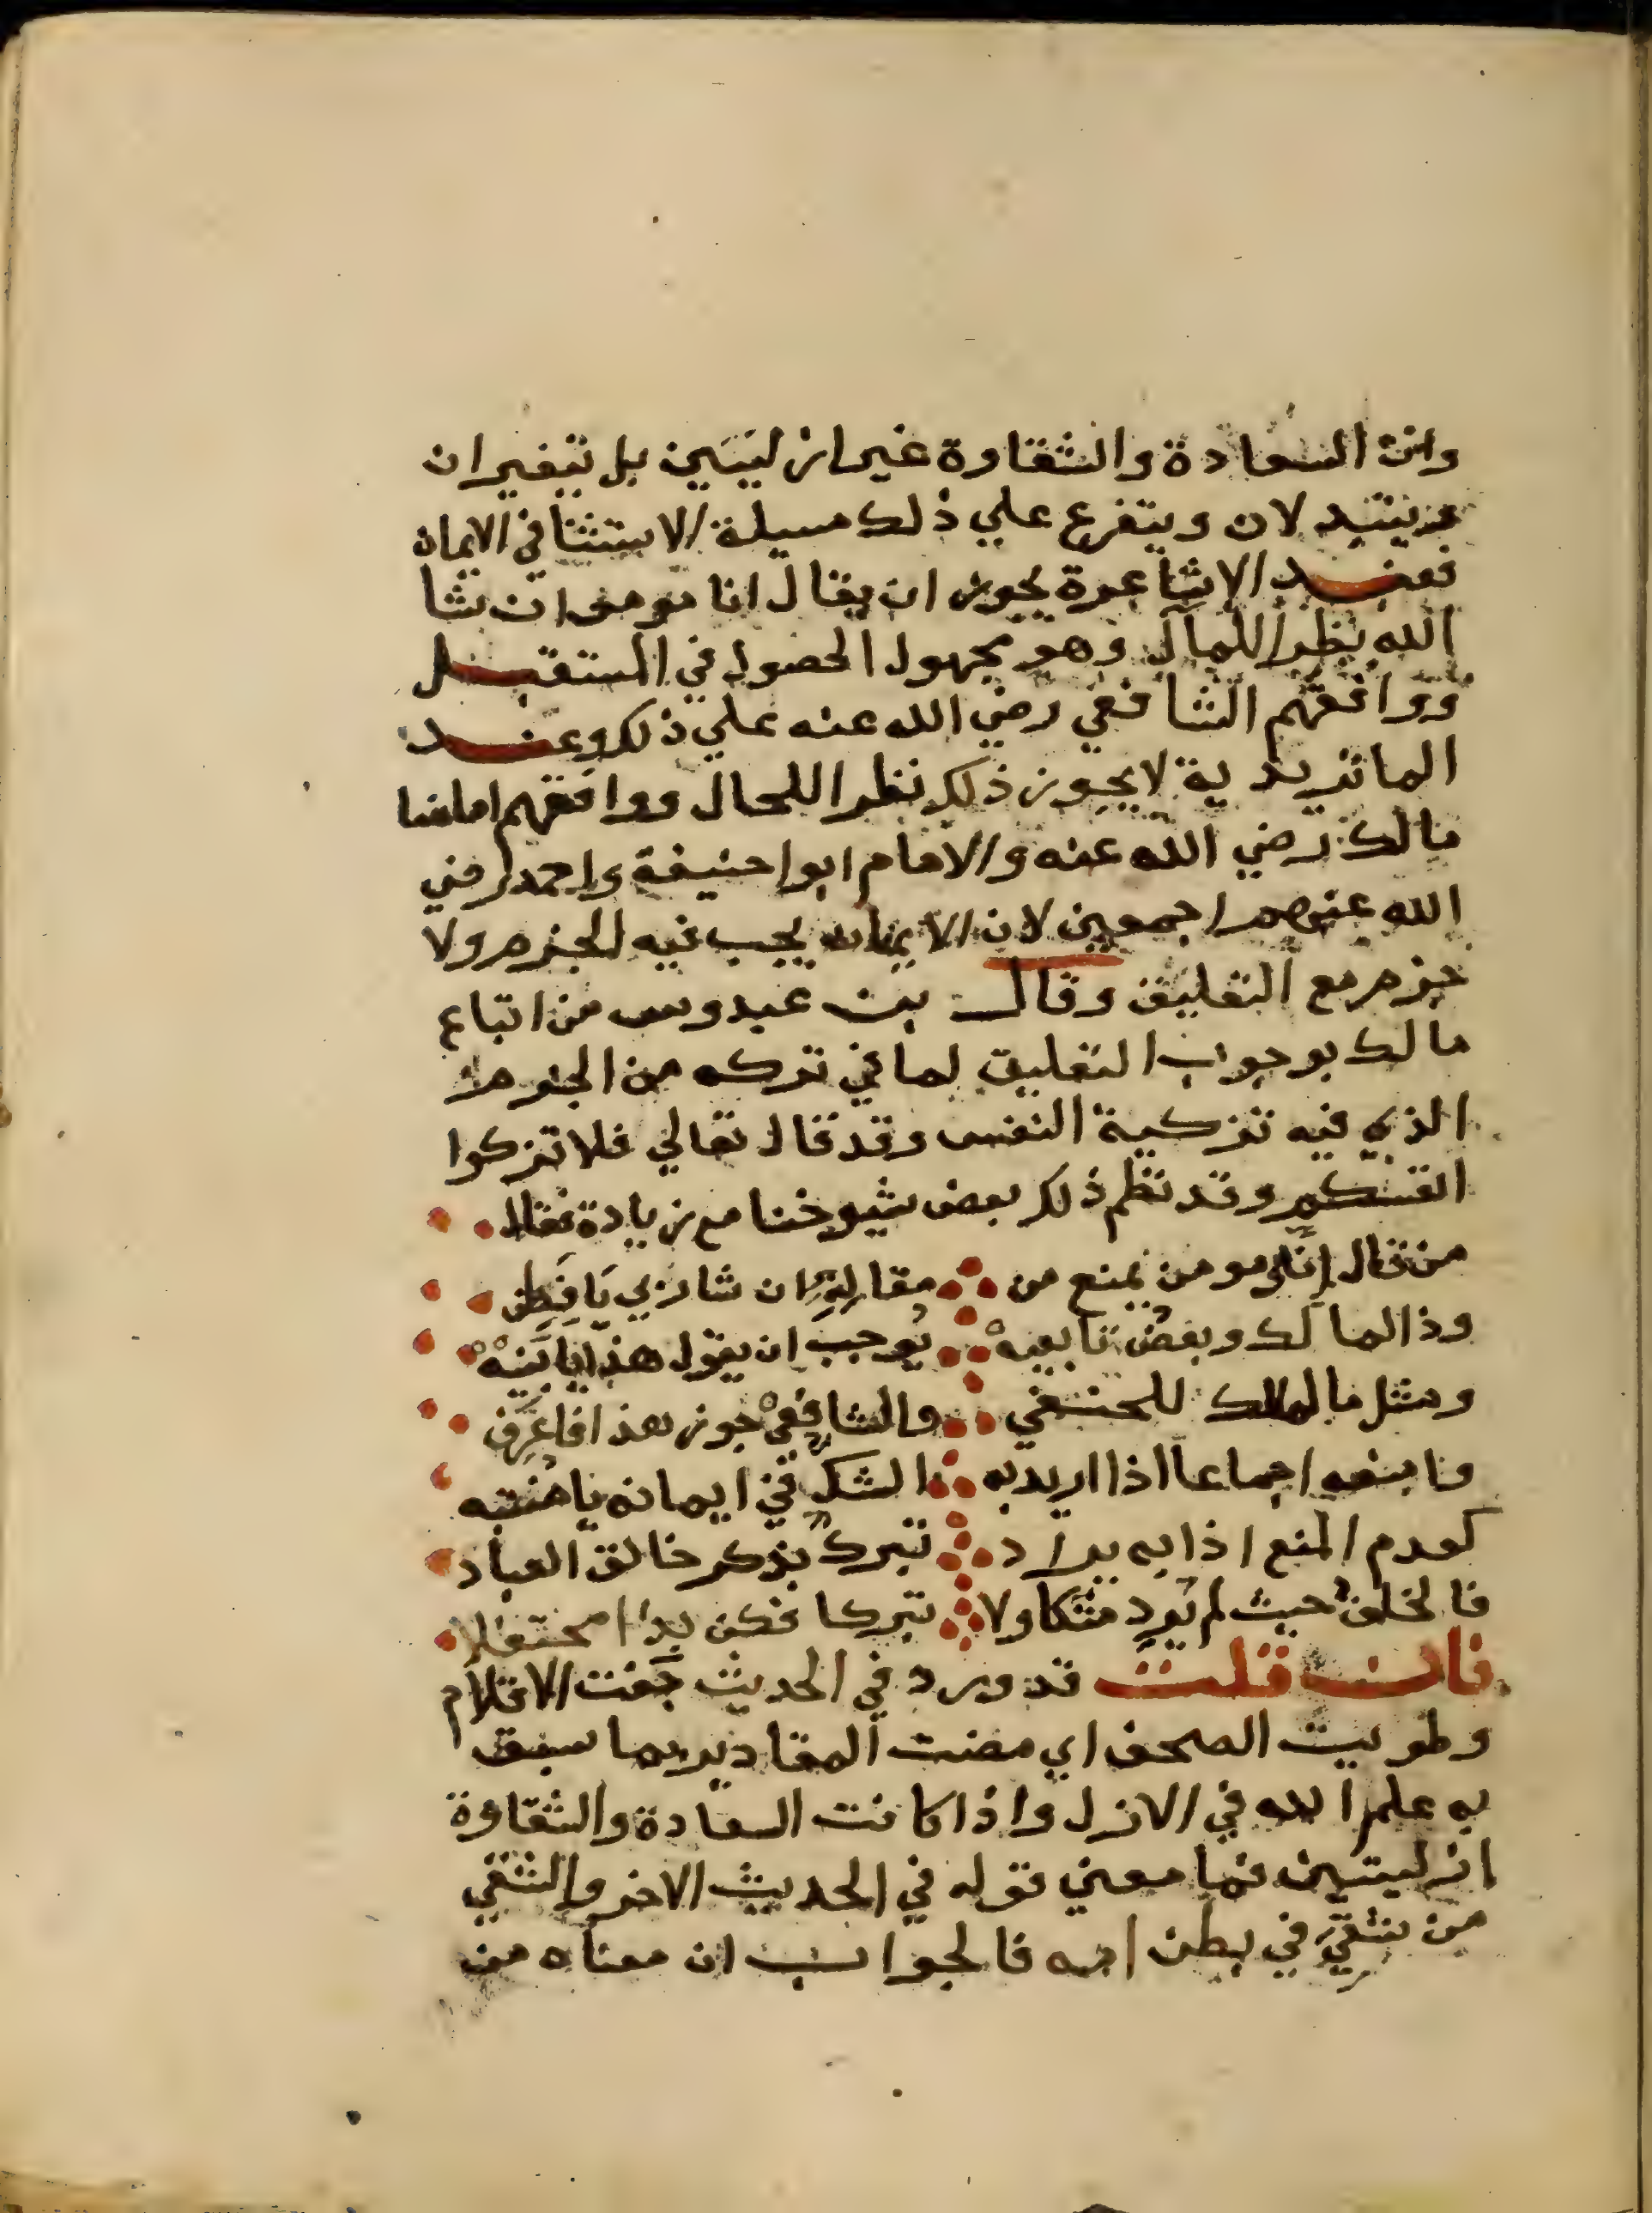 وان السعادة والشقاوة غير ازليتين بل يتغيران
ويتبدلان ويتفرع علي ذلك مسيلة الاستثنا في الايمان
فعند الاشاعرة يجوز ان يقال انا مومن ان شا
الله نظرا للمآل وهو مجهول الحصول في المستقبل
ووافقهم الشافعي رضي الله عنه علي ذلك وعند
الماتريدية لا يجوز ذلك نظرا للحال ووافقهم امامنا
مالك رضي الله عنه والامام ابوا حنيفة واحمد رضي
الله عنهم اجمعين لان الايمان يجب فيه الجزم ولا
جزم مع التعليق وقال بن عبدوس من اتباع
مالك بوجوب التعليق لما في تركه من الجزم
الذي فيه تزكية النفس وقد قال تعالي فلا تزكوا
انفسكم وقد نظم ذلك بعض شيوخنا مع زيادة فقال
من قال اني مومن يمنع من مقاله ان شا ربي يا فطن
وذا لمالك وبعض تابعيه يوجب ان يقول هذا يا نبيه
ومثل ما لمالك للحنفي والشافعي جوز هذا فاعرف
وامنعه اجماعا اذا اريد به الشك في ايمانه يا منتبه
كعدم المنع اذا به يراد تبرك بذكر خالق العباد
فالخلف حيث لم يرد شكا ولا تبركا فكن بذا محتفلا
فان قلت قد ورد في الحديث جفت الاقلام
وطويت الصحف اي مضت المقادير بما سبق
به علم الله في الازل واذا كانت السعادة والشقاوة
ازليتين فما معني قوله في الحديث الاخر والشقي
من شقي في بطن امه فالجواب ان معناه من